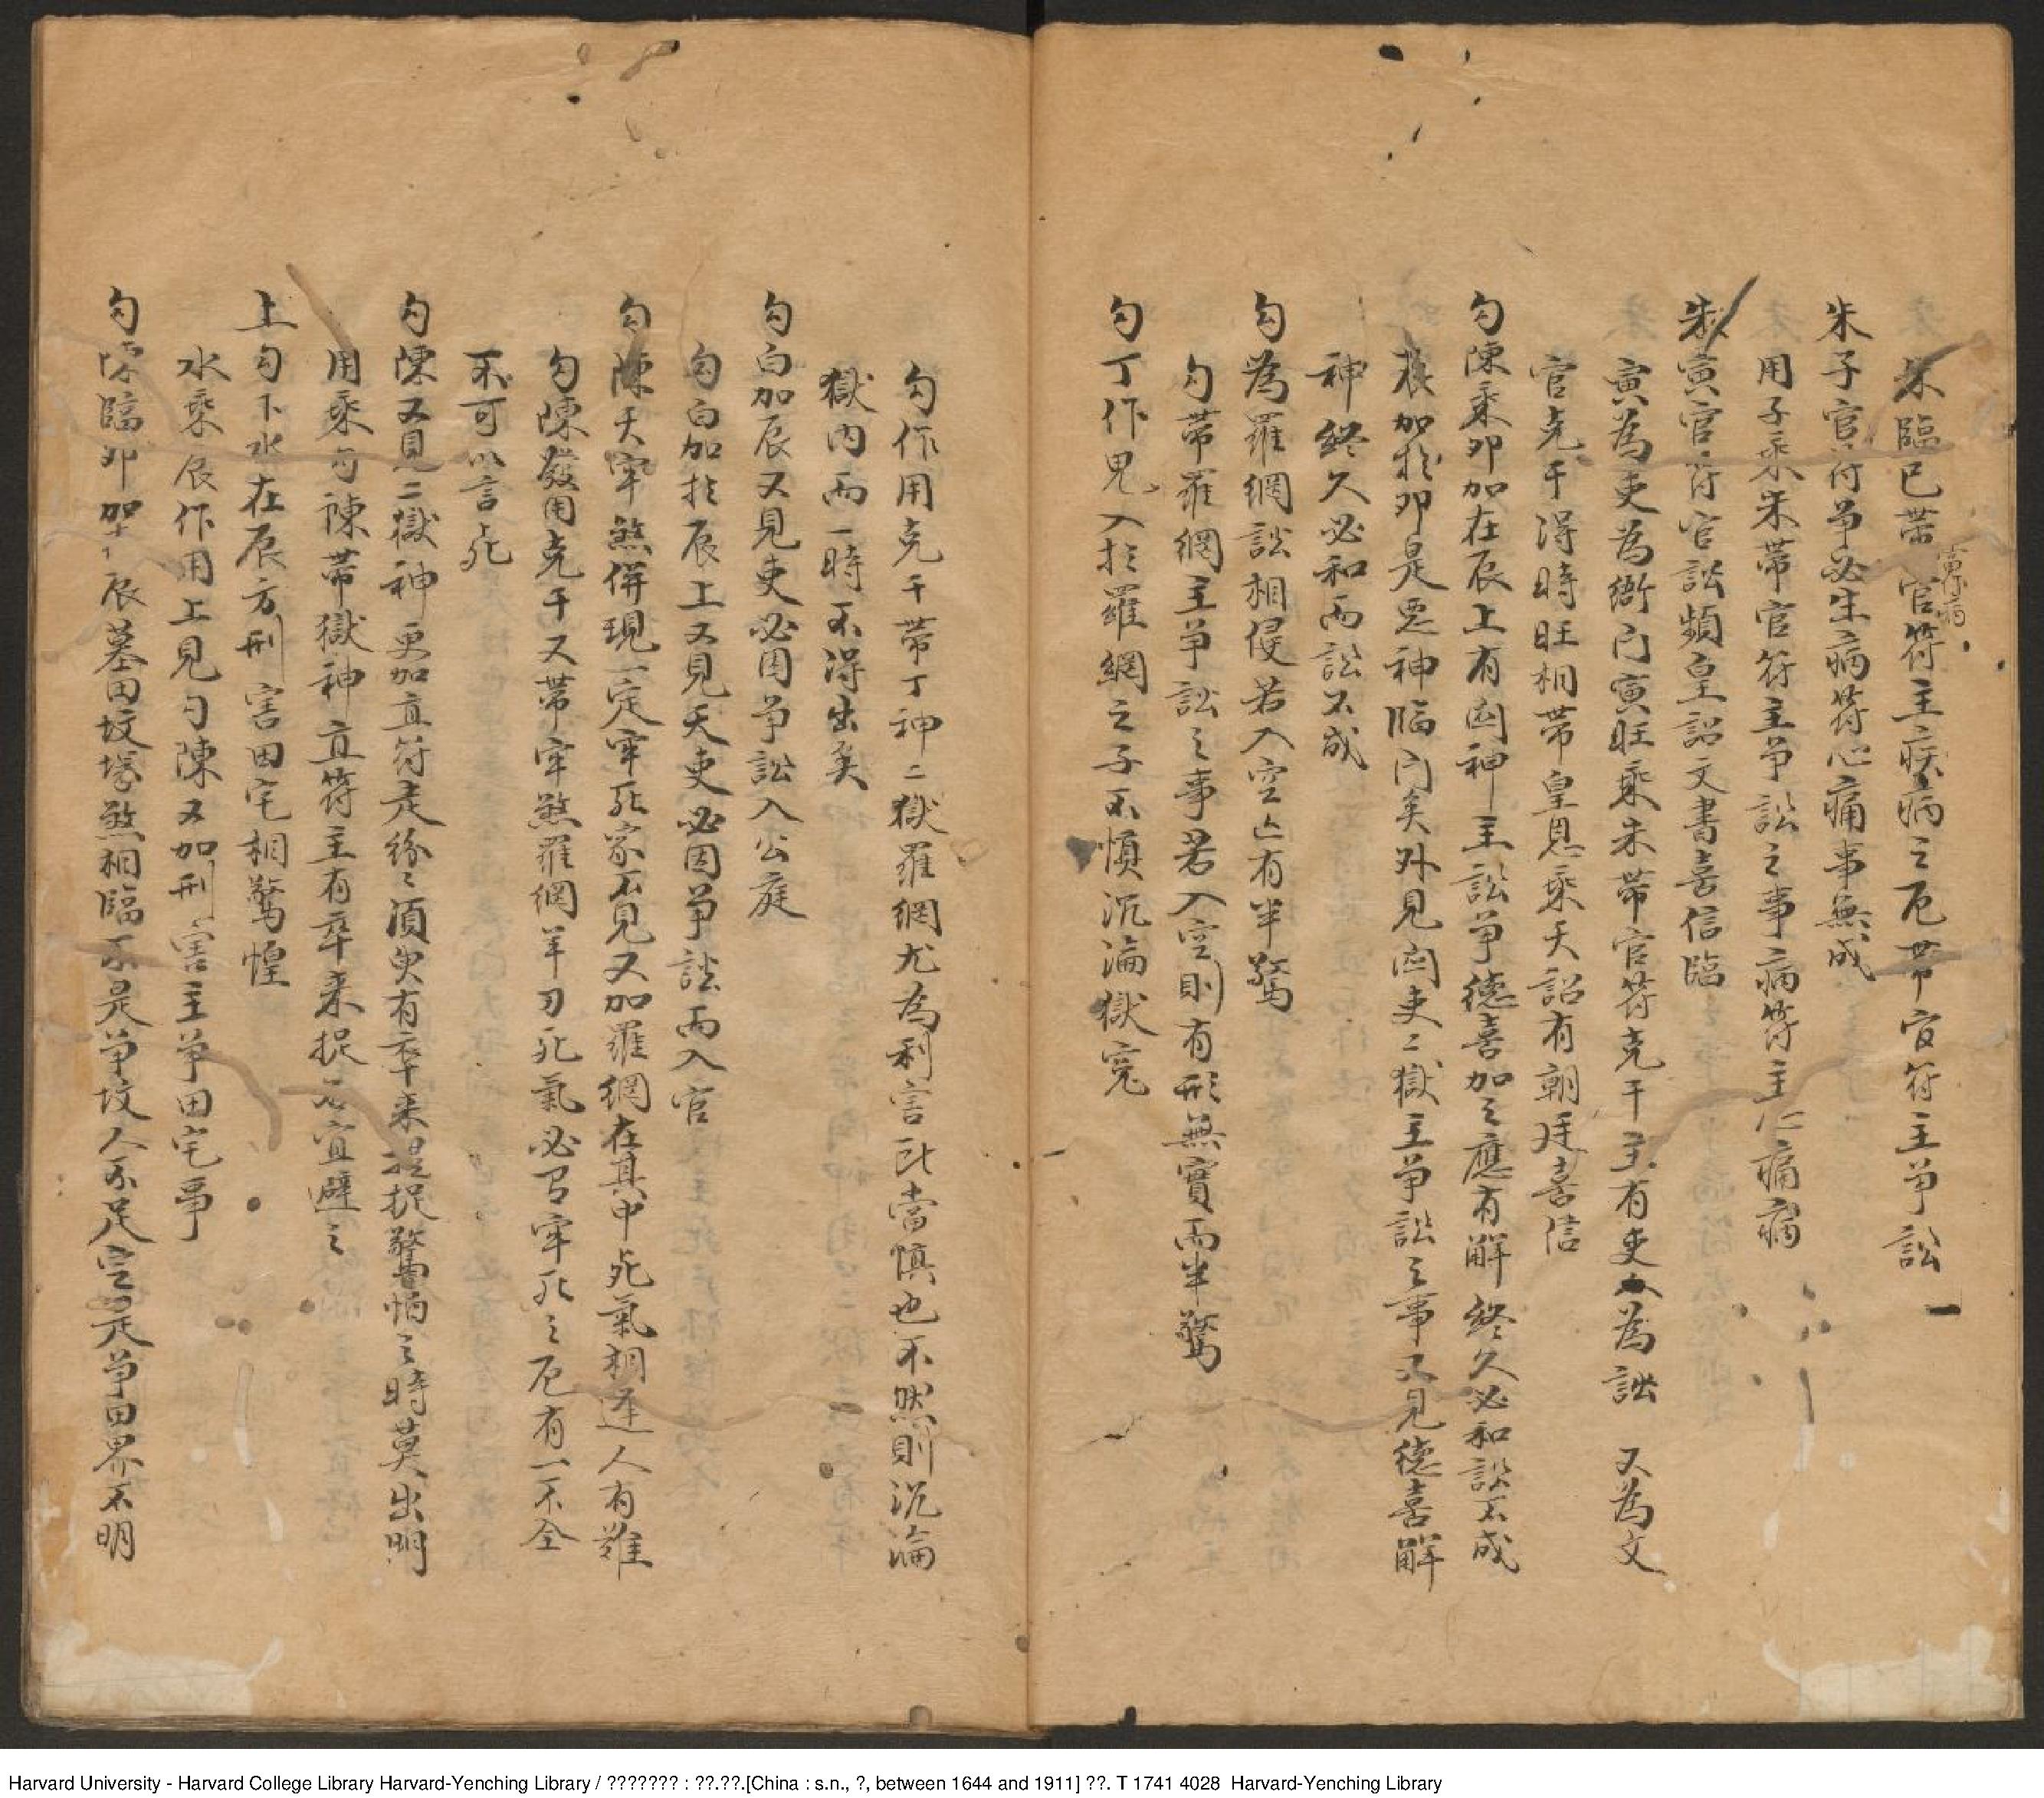 朱臨巳帶官符主疾病之厄帶官符主爭訟
朱子官符爭必生病符心痛事無成
用子乘朱帶官符主爭訟之事病符主心痛病
朱寅官符官訟頻皇詔文書喜信臨
寅為吏為衙门寅旺乘朱帶官符克干主有吏人為訟 又為文
官克干得時旺相帶皇恩乘天詔有朝廷喜信
勾陳乘卯加在辰上有凶神主訟爭德喜加之應有解終久必和訟不成
辰加扵卯是惡神臨门矣外見凶吏二獄主爭訟之事又見德喜解
神終久必和而訟不成
勾為羅網訟相侵若入空亡有半驚
勾帶羅網主爭訟之事若入空則有形無實而半驚
勾丁作鬼入扵羅網之子不慎沉淪獄冤
勾作用克干帶丁神二獄羅網尤為利害此當慎也不然則沉淪
獄内而一時不得出矣
勾白加辰又見吏必因爭訟入公庭
勾白加扵辰上又見天吏必因爭訟而入官
勾陳天牢煞併現一定牢死家不見又加羅網在其中死氣相逢人有難
勾陳發用克干又帶牢煞羅網羊刃死氣必有牢死之厄有一不全
不可以言死
勾陳又見二獄神更加直符走紛〻須臾有卒来提捉驚怕之時莫出門
用乘勾陳帶獄神直符主有卒来捉 宜避之
上勾下水在辰方刑害田宅相驚惶
水乘辰作用上見勾陳又加刑害主爭田宅事
勾陳臨卯加 辰墓田坟塚煞相臨不是爭坟人不足定是爭田界不明
Harvard University - Harvard College Library Harvard-Yenching Library / ??????? : ??.??.[China : s.n., ?, between 1644 and 1911] ??. T 1741 4028 Harvard-Yenching Library